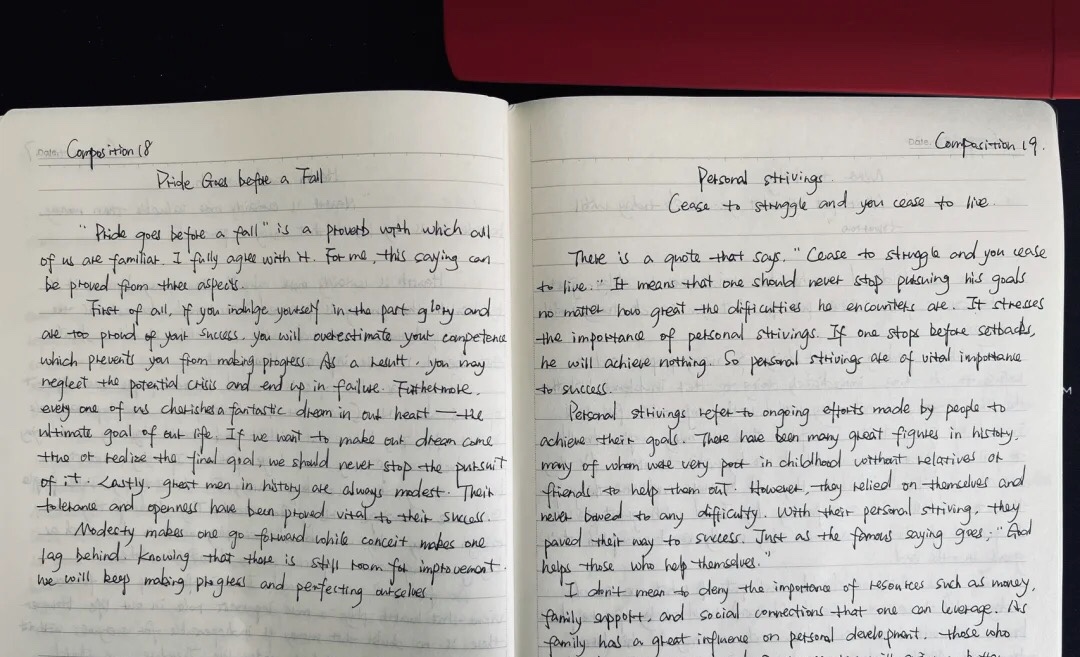 Date.
Composition 18
Pride Goes before a Fall
"Pride goes before a fall" is a proverb with which all
of us are familiar. I fully agree with it. For me, this saying can
be proved from three aspects.
First of all, if you indulge yourself in the part glory and
are too proud of your success, you will overestimate your competence
which prevents you from making progress. As a result, you may
neglect the potential crisis and end up in failure. Futhermore,
every one of us cherishes a fantastic dream in our heart — the
ultimate goal of our life. If we want to make our dream come
true or realize the final goal, we should never stop the pursuit
of it. Lastly, great men in history are always modest. Their
tolerance and openness have been proved vital to their success.
Modesty makes one go forward while conceit makes one
lag behind. Knowing that there is still room for improvement,
we will keep making progress and perfecting ourselves.
Date.
Composition 19.
Personal strivings.
Cease to struggle and you cease to live.
There is a quote that says, "Cease to struggle and you cease
to live." It means that one should never stop pursuing his goals
no matter how great the difficulties he encounters are. It stresses
the importance of personal strivings. If one stops before setbacks,
he will achieve nothing. So personal strivings are of vital importance
to success.
Personal strivings refer to ongoing efforts made by people to
achieve their goals. There have been many great figures in history,
many of whom were very poor in childhood without relatives or
friends to help them out. However, they relied on themselves and
never bowed to any difficulty. With their personal striving, they
paved their way to success. Just as the famous saying goes: "God
helps those who help themselves."
I don't mean to deny the importance of resources such as money,
family support, and social connections that one can leverage. As
family has a great influence on personal development, those who